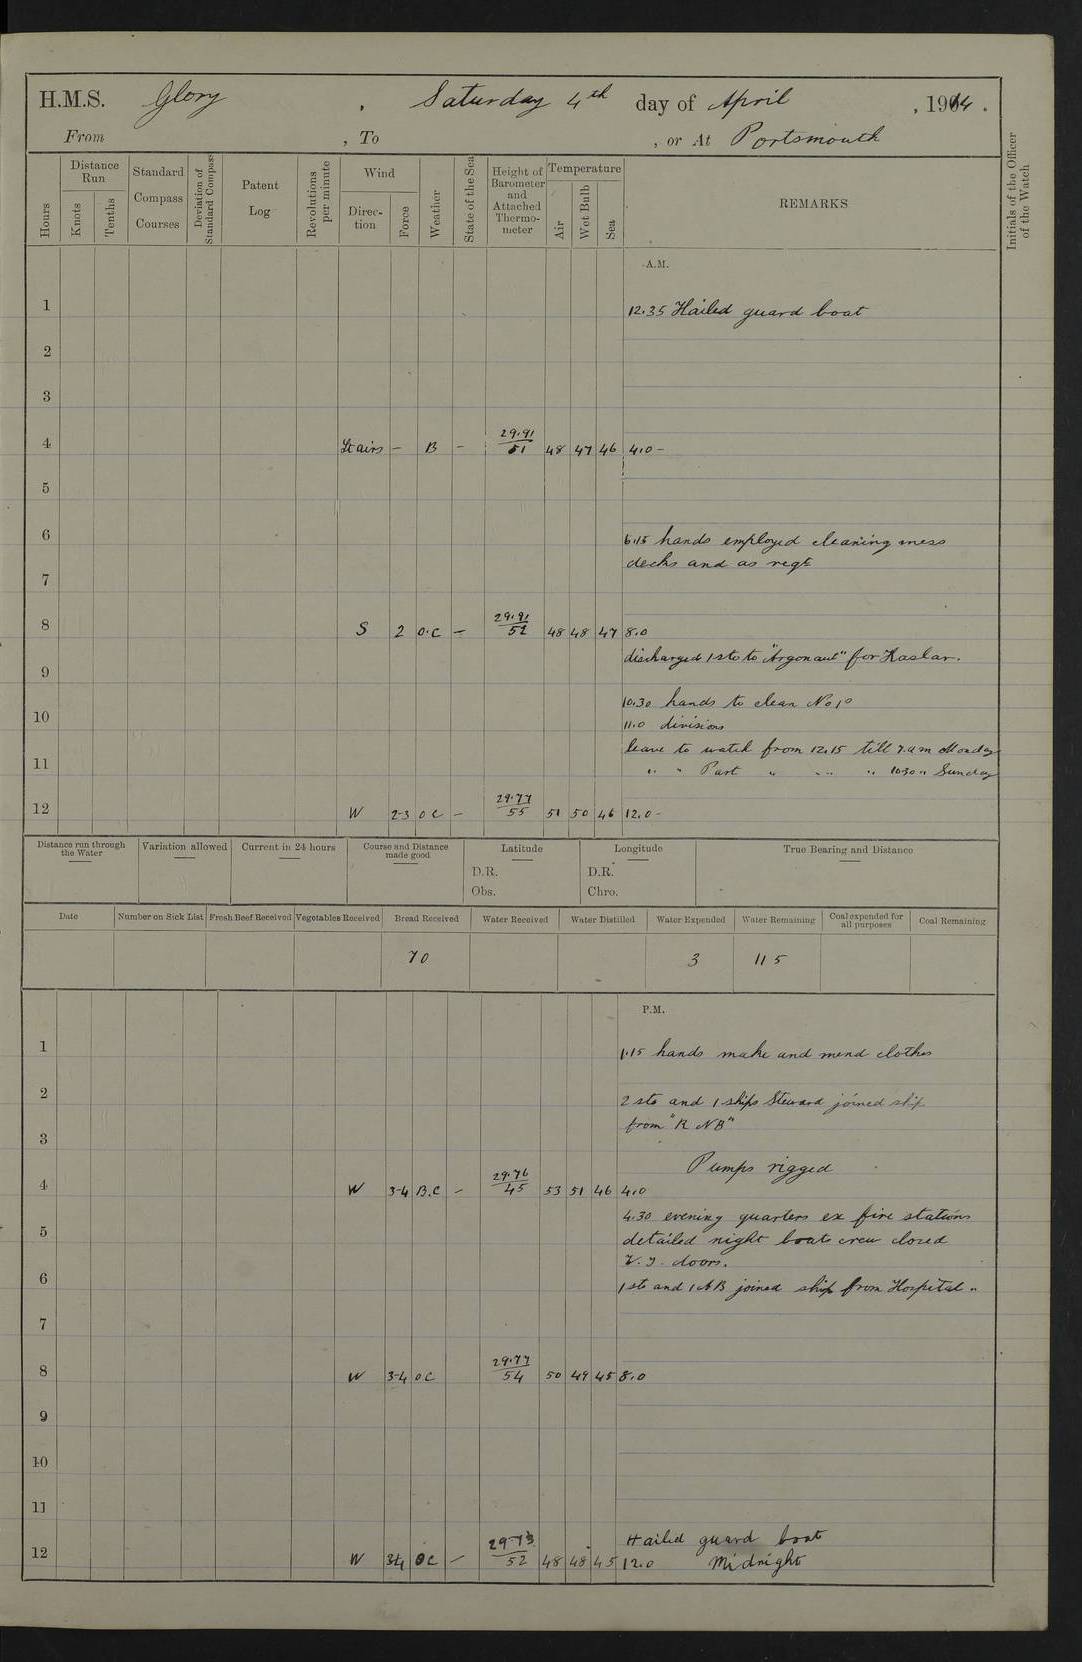 H.M.S. Glory , Saturday 4th day of April , 1914 .
From , To , or At Portsmouth
Hours
Distance Run
Knots
Tenths
Standard Compass Courses
Deviation of Standard Compass
Patent Log
Revolutions per minute
Wind
Direction
Force
Weather
State of the Sea
Height of Barometer and Attached Thermometer
Temperature
Air
Wet Bulb
Sea
REMARKS
Initials of the Officer of the Watch
A.M.
1 12.35 Hailed guard boat
2
3
4 Lt airs - B - 29.91 51 48 47 46 4.0 -
5
6 6.15 hands employed cleaning mess
decks and as reqt
7
8 S 2 O.C - 29.91 52 48 48 47 8.0
discharged 1 sto to "Argonaut" for Haslar.
9
10.30 hands to clean No 1º
10 11.0 divisions
leave to watch from 12.15 till 7.am Monday
11 " " Part " " " " 10.30 " Sunday
12 W 2-3 O C - 29.77 55 51 50 46 12.0 -
Distance run through the Water
Variation allowed
Current in 24 hours
Course and Distance made good
Latitude
D.R.
Obs.
Longitude
D.R.
Chro.
True Bearing and Distance
Date
Number on Sick List
Fresh Beef Received
Vegetables Received
Bread Received
Water Received
Water Distilled
Water Expended
Water Remaining
Coal expended for all purposes
Coal Remaining
70 3 115
P.M.
1 1.15 hands make and mend clothes
2 2 sto and 1 ships Steward joined ship
from "R N B"
3
Pumps rigged
4 W 3-4 B.C - 29.76 45 53 51 46 4.0
4.30 evening quarters ex fire stations
5 detailed night boats crew closed
W.T. doors.
6 1 sto and 1 AB joined ship from Hospital.
7
8 W 3-4 O C 29.77 54 50 49 45 8.0
9
10
11
Hailed guard boat
12 W 3-4 O C - 29.73 52 48 48 45 12.0 Midnight